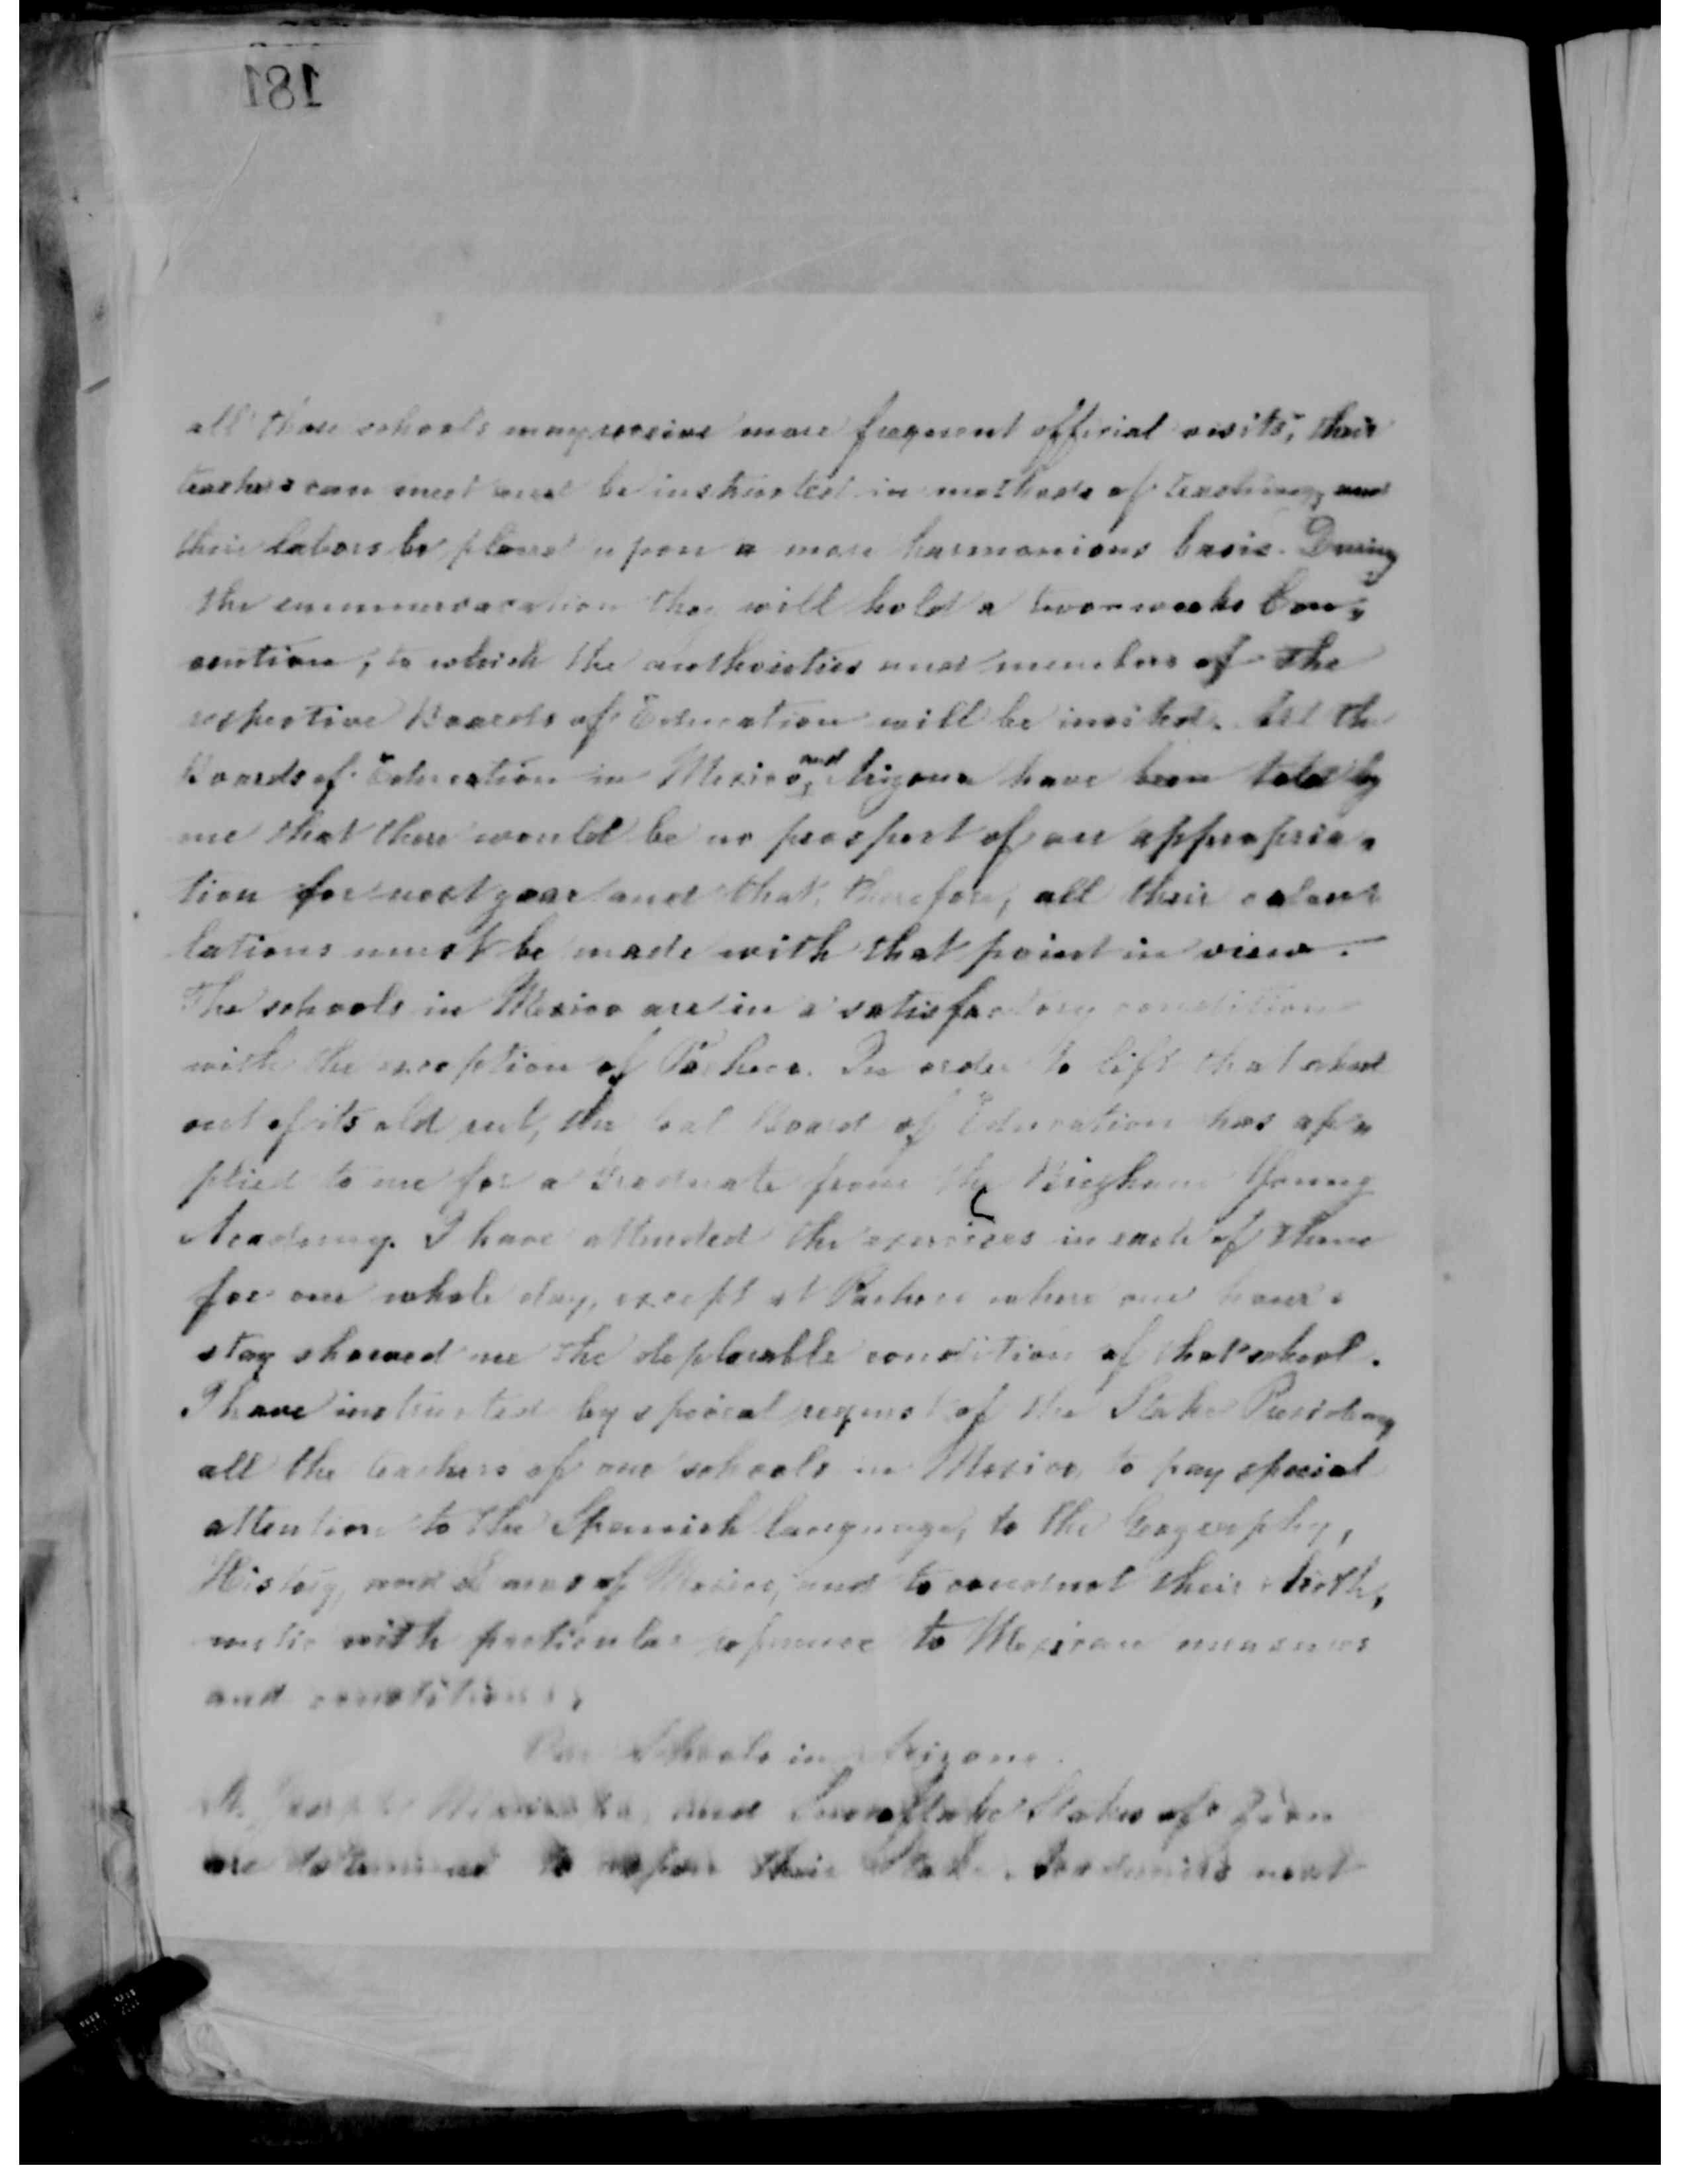 181
all those schools may receive more frequent official visits, their
teachers can meet and be instructed in methods of teaching, and
their labors be placed upon a more harmonious basis. During
the summervacation they will hold a two-weeks Con-
vention, to which the authorities and members of the
respective Boards of Education will be invited. All the
Boards of Education in Mexico and Arizona have been told by
me that there would be no prospect of an appropria-
tion for next year and that, therefore, all their calcu-
lations must be made with that point in view.
The schools in Mexico are in a satisfactory condition
with the exception of Pacheco. In order to lift that school
out of its old rut, the local Board of Education has ap-
plied to me for a Graduate from the Brigham Young
Academy. I have attended the exercises in each of them
for one whole day, except at Pacheco where one hour's
stay showed me the deplorable condition of that school.
I have instructed by special request of the Stake Presidency
all the teachers of our schools in Mexico, to pay special
attention to the Spanish language, to the Geography,
History, and Laws of Mexico, and to conduct their Arith-
metic with particular reference to Mexican measures
and conditions.
Our Schools in Arizona.
St. Joseph, Maricopa, and Snowflake Stakes of Zion
are determined to reopen their Stake Academies next